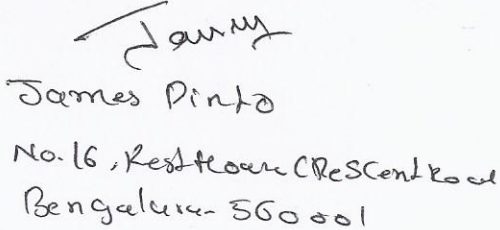 James Pinto
No. 16, Rest House CRESCent Road
Bengaluru - 560001